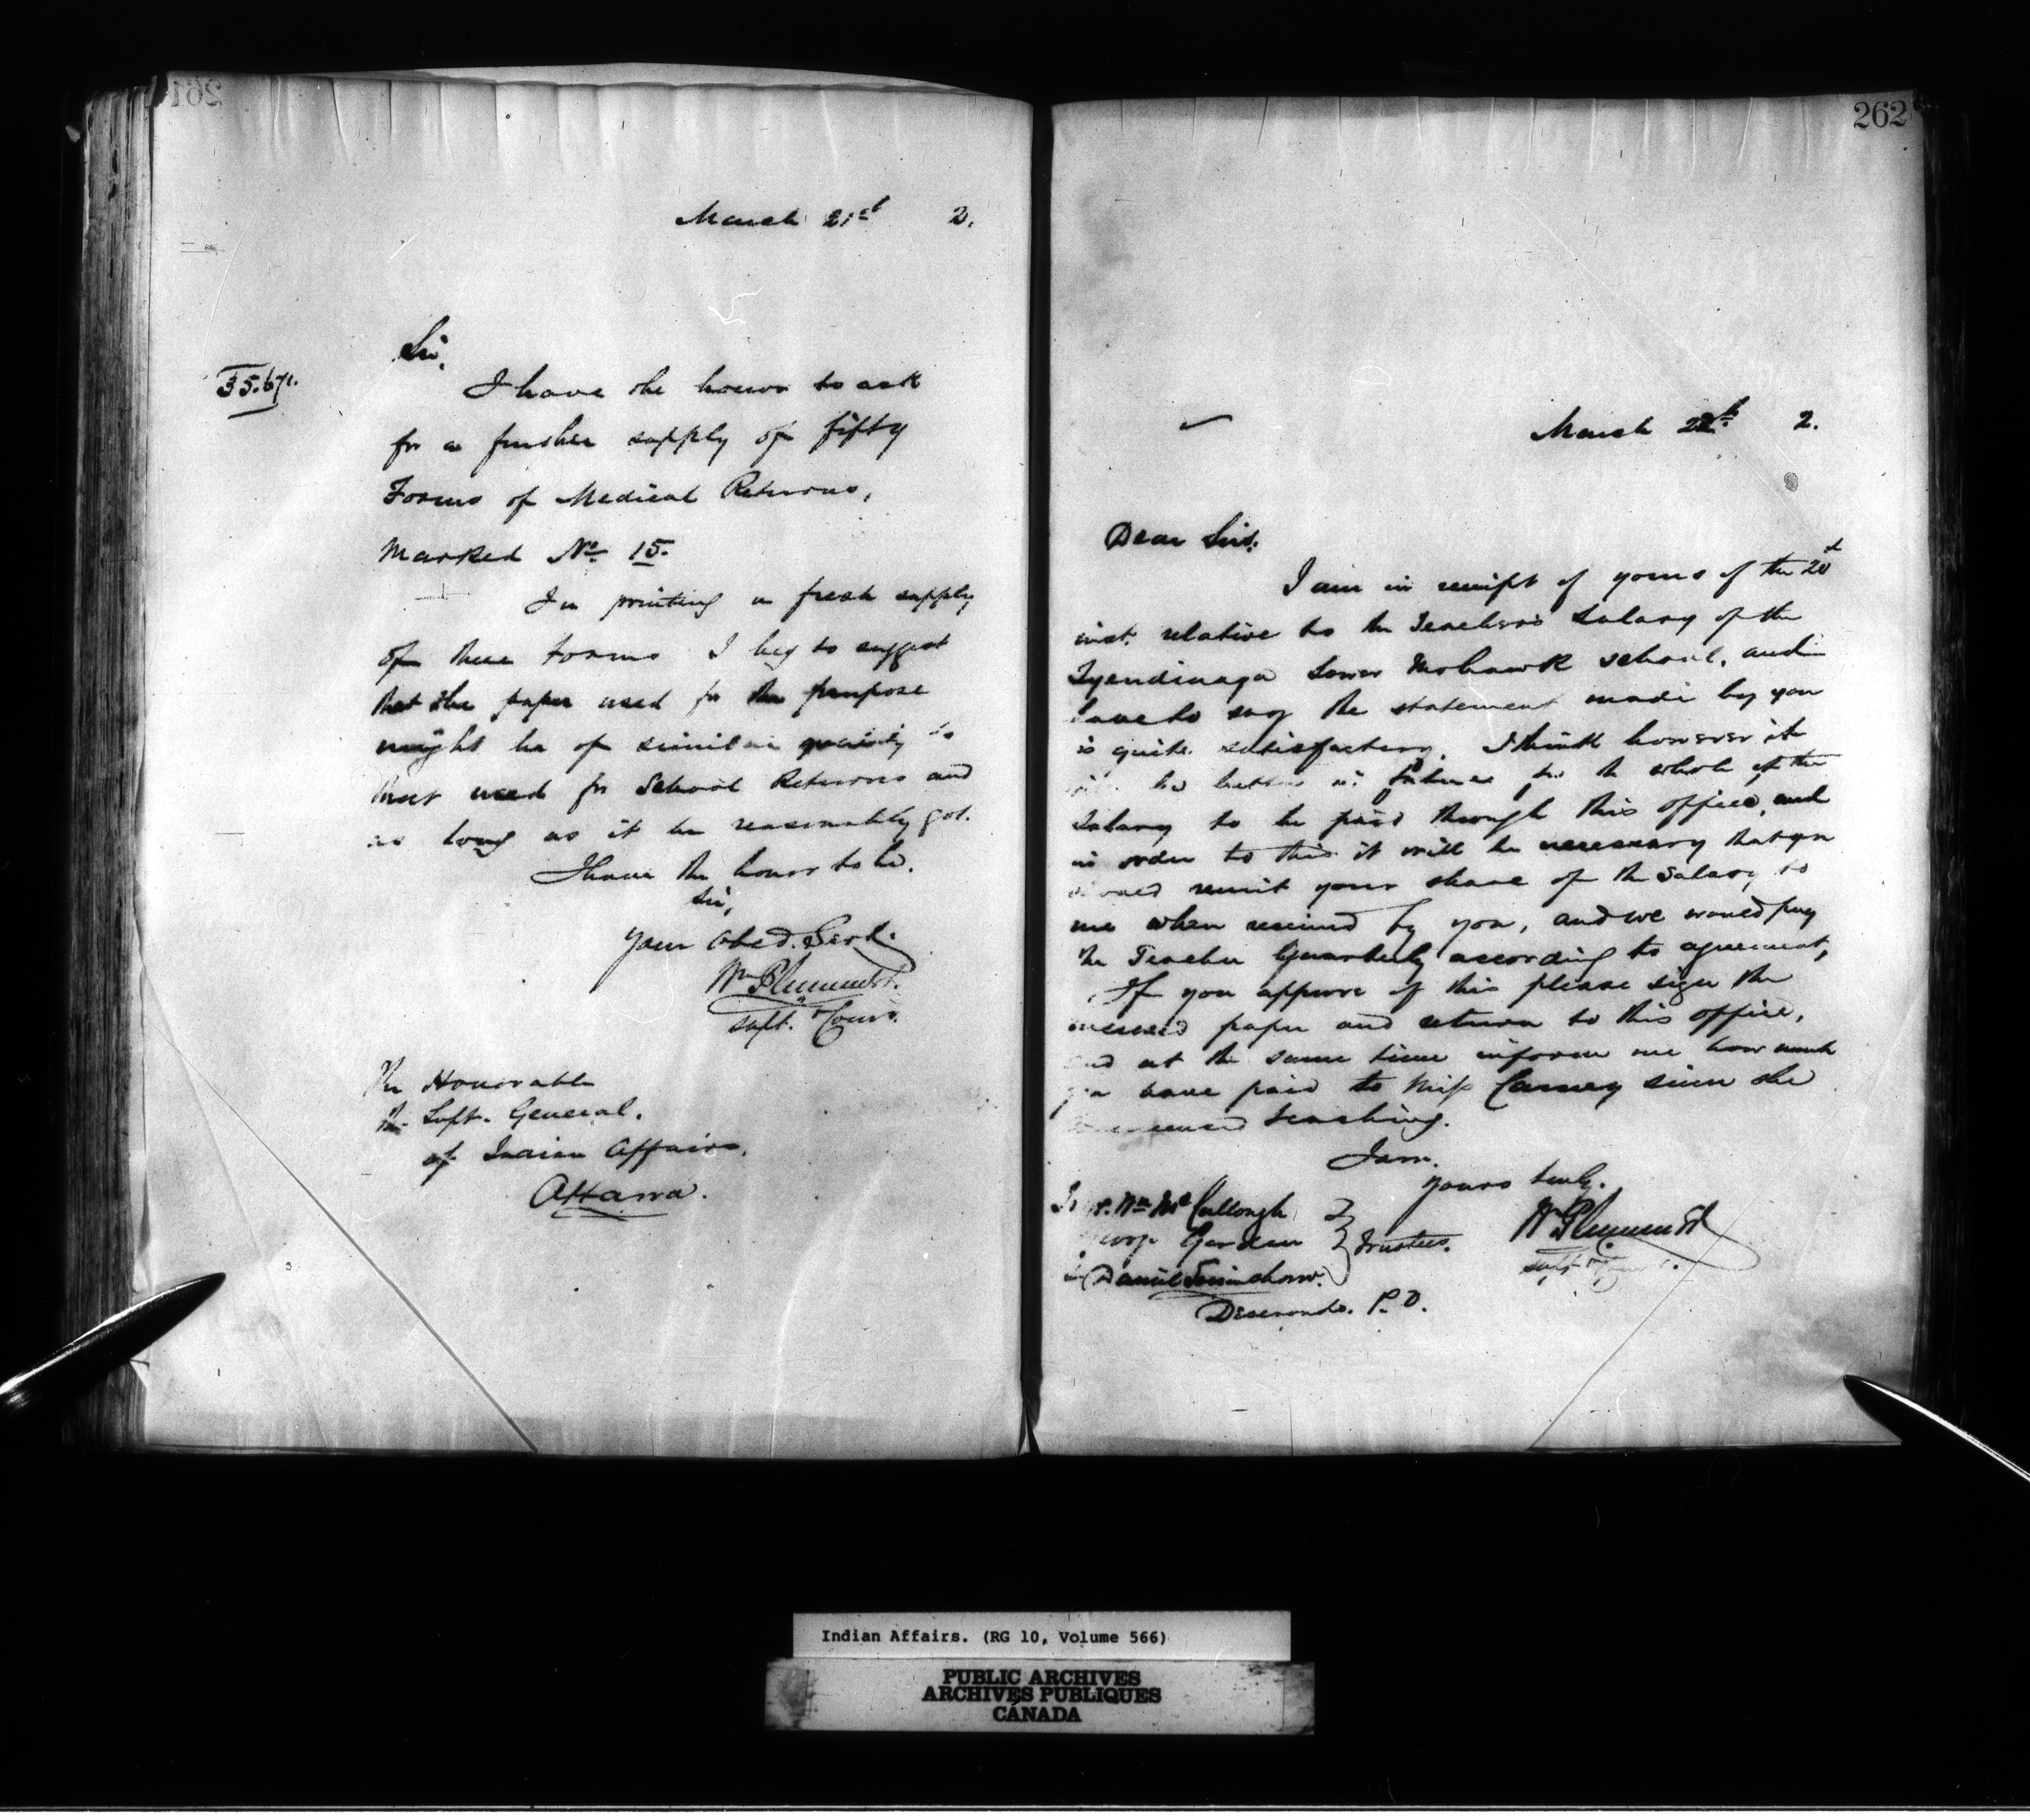 261
March 21st 2.
35.671.
Sir,
I have the honor to ask
for a further supply of fifty
Forms of Medical Returns,
Marked No. 15.
In printing a fresh supply
of these forms I beg to suggest
that the paper used for the purpose
might be of similar quality to
that used for School Returns and
as long as it be reasonably got.
I have the honor to be.
Sir,
Your Obed. Servt.
Wm Plummer
Supt. & Comr.
The Honorable
The Supt. General.
of Indian Affairs.
Ottawa.
262
March 22d 2.
Dear Sirs.
I am in receipt of yours of the 20th
inst. relative to the Teacher's Salary of the
Tyendinaga Lower Mohawk school. and
have to say the statement made by you
is quite satisfactory. I think however it
will be better in future for the whole of the
Salary to be paid through this office, and
in order to this it will be necessary that you
should remit your share of the Salary to
me when received by you, and we would pay
the Teacher Quarterly according to agreement,
If you approve of this please sign the
enclosed paper and return to this office,
and at the same time inform me how much
you have paid to Miss Carney since she
commenced teaching.
I am.
Yours truly.
Wm Plummer
Supt & Comr.
Wm McCullough
Garden
Trustees.
Daniel
Deseronto. P.O.
Indian Affairs. (RG 10, Volume 566)
PUBLIC ARCHIVES
ARCHIVES PUBLIQUES
CANADA